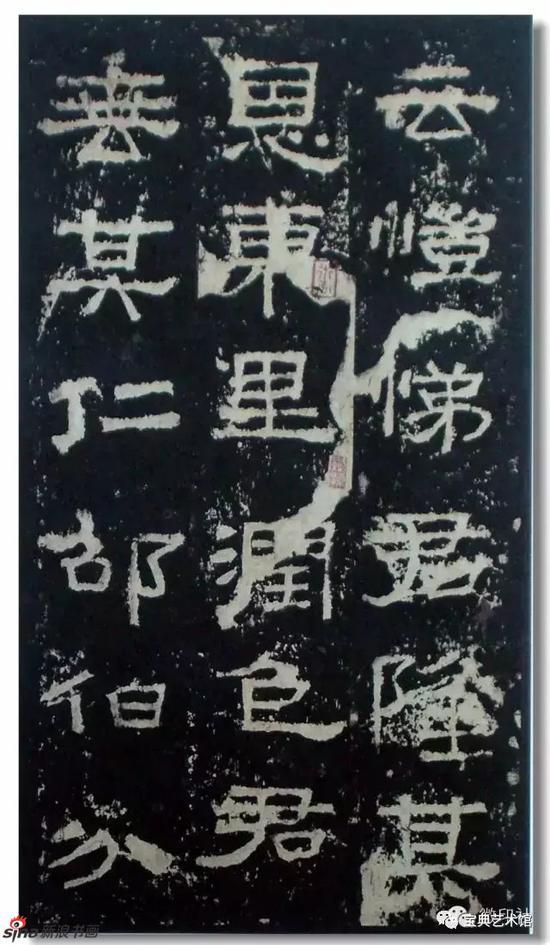 云愷悌君隆其
恩東里潤色君
垂其仁邵伯分
sina 新浪书画
宝典艺术馆